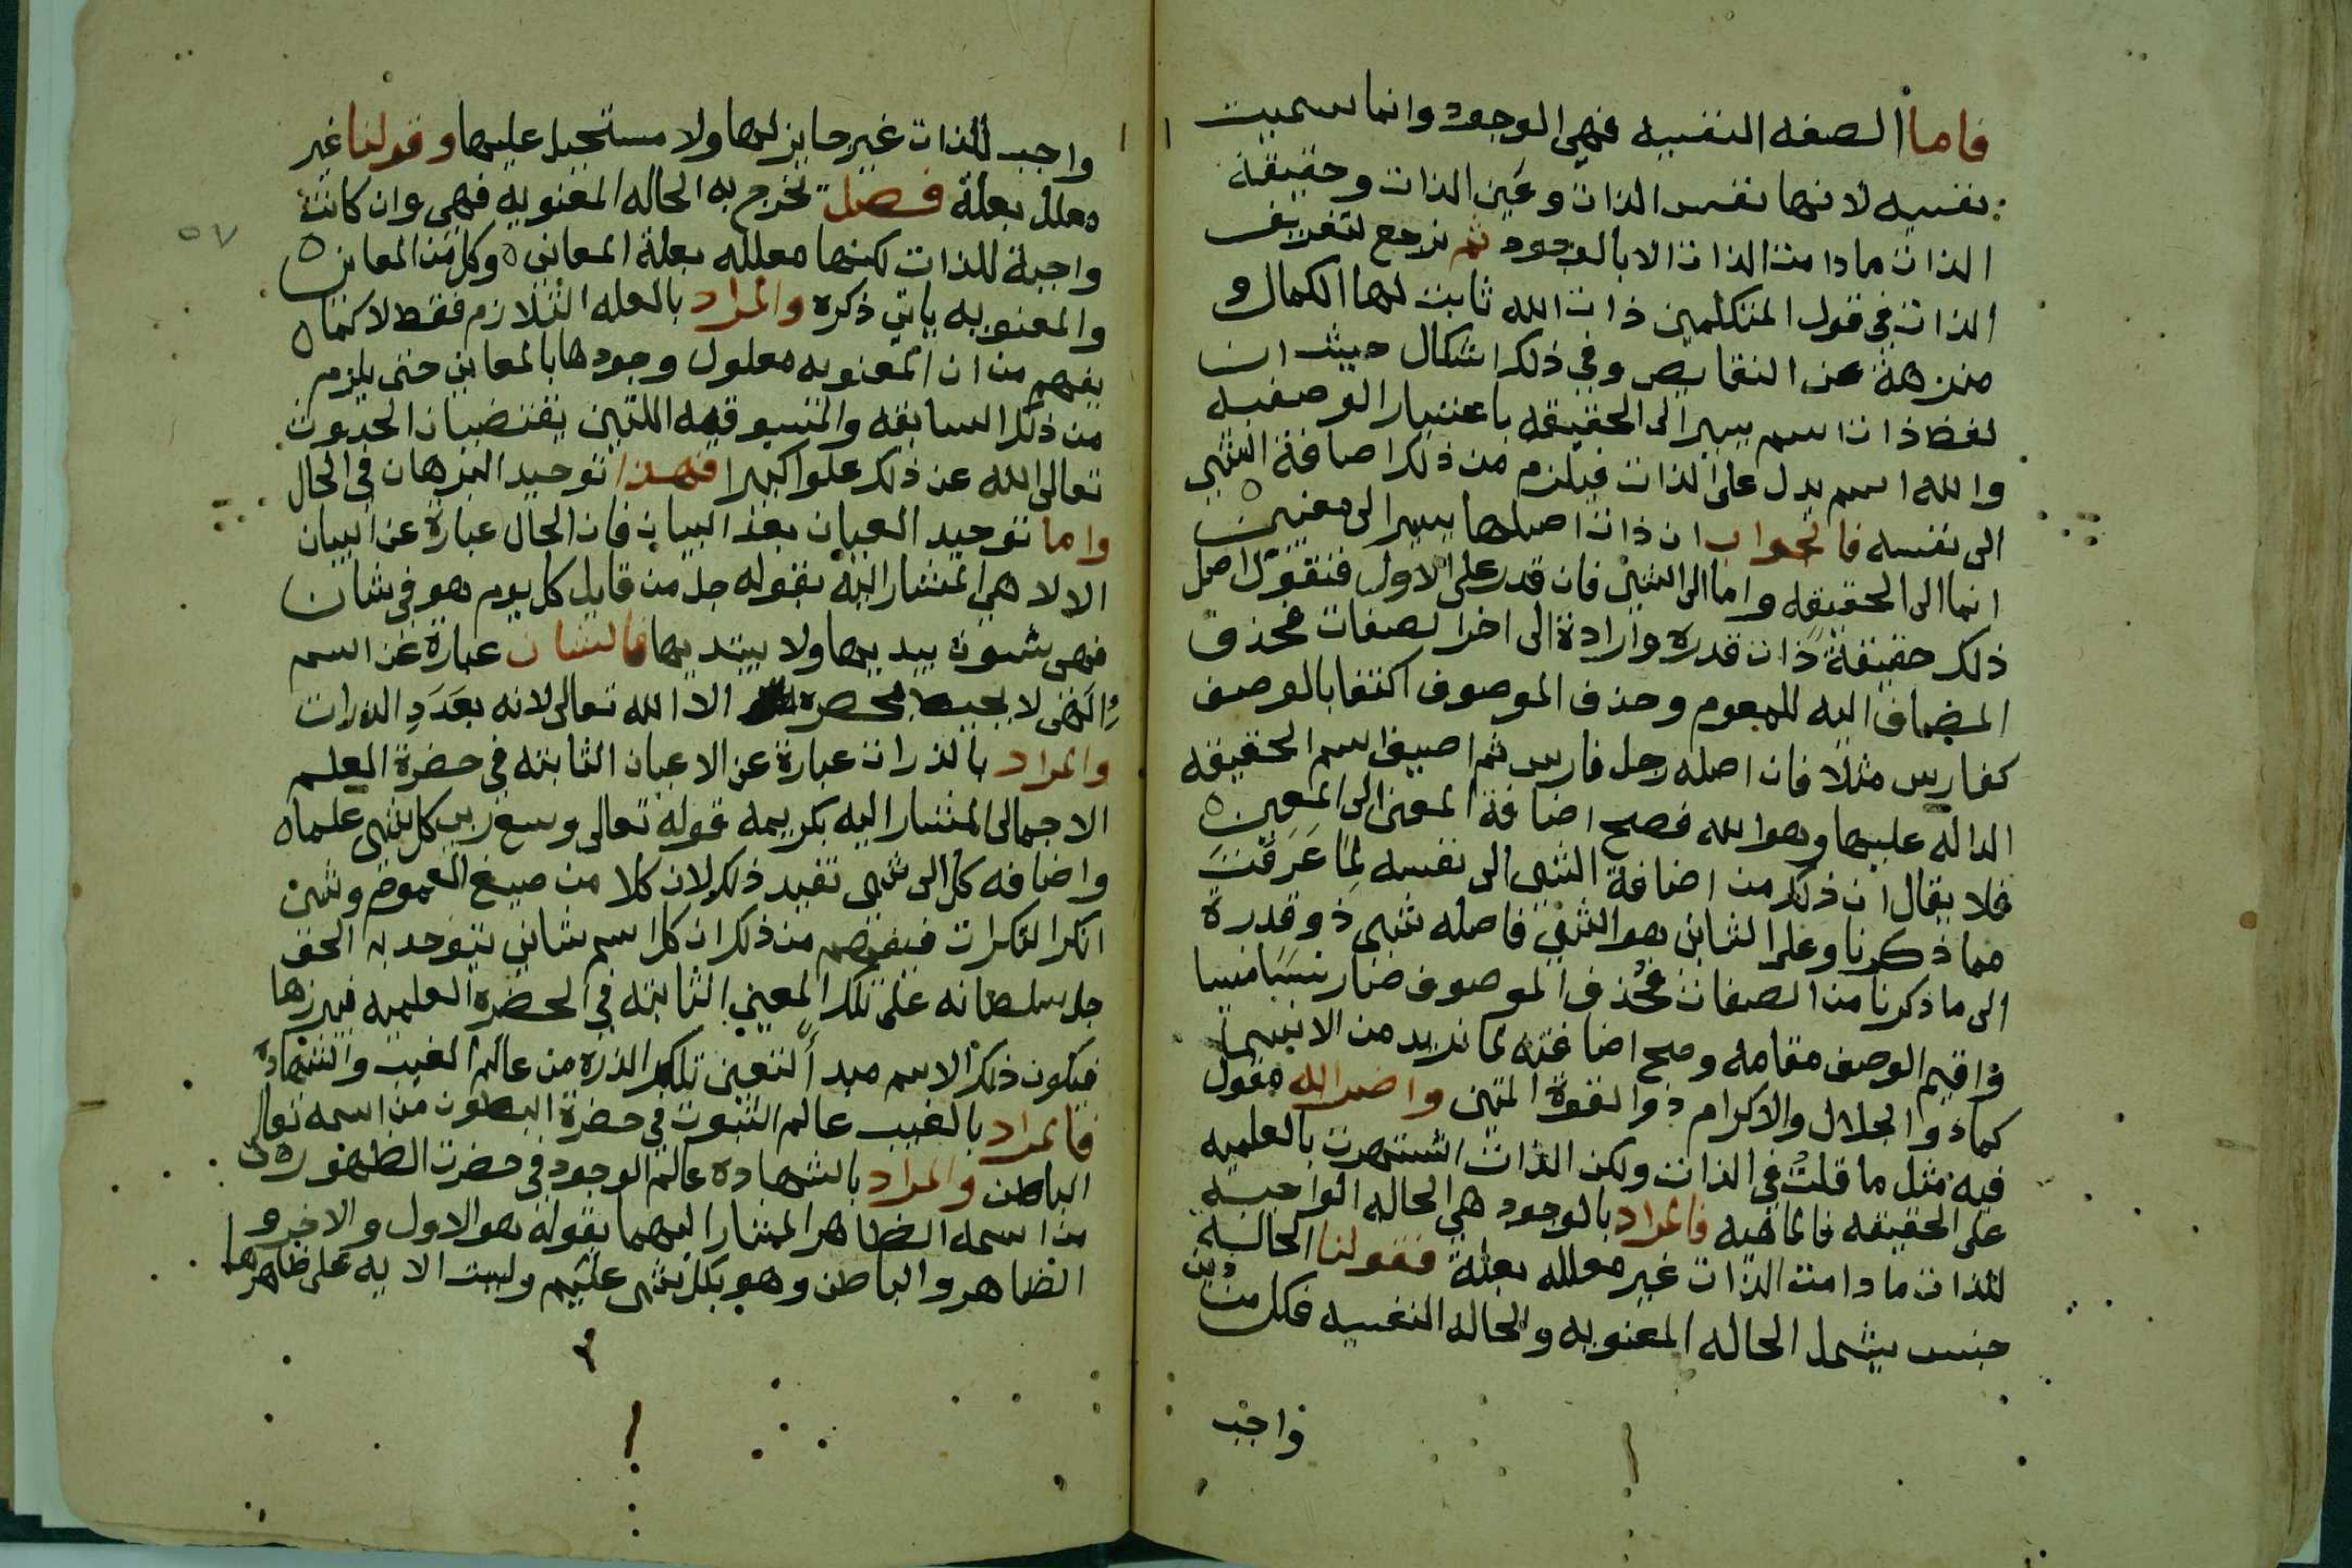 فاما الصفه النفسيه فهي الوجود وانما سميت
نفسيه لانها نفس الذات وعين الذات وحقيقة
الذات ما دامت الذات الا بالوجود ثم نرجع لتعريف
الذات في قول المتكلمين ذات الله ثابت لها الكمال و
منزهة عن النقايص وفي ذلك اشكال حيث ان
لفظ ذات اسم يسير الى الحقيقه باعتبار الوصفيه
والله اسم يدل على الذات فيلزم من ذلك اضافة الشي
الى نفسه فالجواب ان ذات اصلها يسير الى معنيين
انما الى الحقيقه واما الى الشي فان قدر على الاول فنقول اصل
ذلك حقيقة ذات قدره وارادة الى اخر الصفات فحذف
المضاف اليه للمعوم وحذف الموصوف اكتفا بالوصف
كفارس مثلا فان اصله رجل فارس ثم اضيف اسم الحقيقه
الداله عليها وهو الله فصح اضافة المعنى الى المعين
فلا يقال ان ذلك من اضافة الشي الى نفسه لما عرفت
مما ذكرنا وعلى الثاني هو الشي فاصله شي ذو قدرة
الى ما ذكرنا من الصفات فحذف الموصوف فصار نسيا منسيا
واقيم الوصف مقامه وصح اضافته لما نريد من الانبسا
كما ذو الجلال والاكرام ذو القوة المتين واضر الله فقول
فيه مثل ما قلت في الذات ولكن الذات اشتهرت بالعلميه
على الحقيقه فالماهيه فالمراد بالوجود هي الحاله الواجبه
للذات ما دامت الذات غير معلله بعلة فقولنا الحاله
جنس يشمل الحاله المعنويه والحاله النفسيه فكل من
واجب
واجب للذات غير جايز لها ولا مستحيل عليها وقولنا غير
معلل بعلة فصل تخرج به الحاله المعنويه فهي وان كانت
واجبة للذات لكنها معلله بعلة المعاني وكل من المعاني
والمعنويه ياتي ذكره والمراد بالعله التلازم فقط لا كما
يفهم من ان المعنويه معلول وجودها بالمعاني حتى يلزم
من ذلك السابقه والمسبوقيه اللتين يقتضيان الحدوث
تعالى الله عن ذلك علوا كبيرا فهذا توحيد البرهان في الحال
واما توحيد العيان بعد البيان فان الحال عبارة عن البيان
الالاهي المشار اليه بقوله جل من قايل كل يوم هو في شان
فهي شوون يبديها ولا يبتديها فالشان عبارة عن اسم
الهي لا يحيط بحصره الا الله تعالى لانه بعدد الذرات
والمراد بالذرات عبارة عن الاعيان الثابته في حضرة العلم
الاجمالى المشار اليه بكريمه قوله تعالى وسع ربي كل شي علما
واضافه كل الى شي تفيد ذلك لان كلا من صيغ العموم وشي
انكر النكرات فيفهم من ذلك ان كل اسم شاني يتوحد به الحق
جل سلطانه على تلك المعين الثابته في الحضرة العلميه فيبرزها
فيكون ذلك الاسم مبدأ لتعين تلك الذره من عالم الغيب والشهاده
فالمراد بالغيب عالم الثبوت في حضرة البطون من اسمه تعالى
الباطن والمراد بالشهاده عالم الوجود في حضرت الظهور
من اسمه الظاهر المشار اليهما بقوله هو الاول والاخر و
الظاهر والباطن وهو بكل شي عليم وليت الايه على ظاهرها